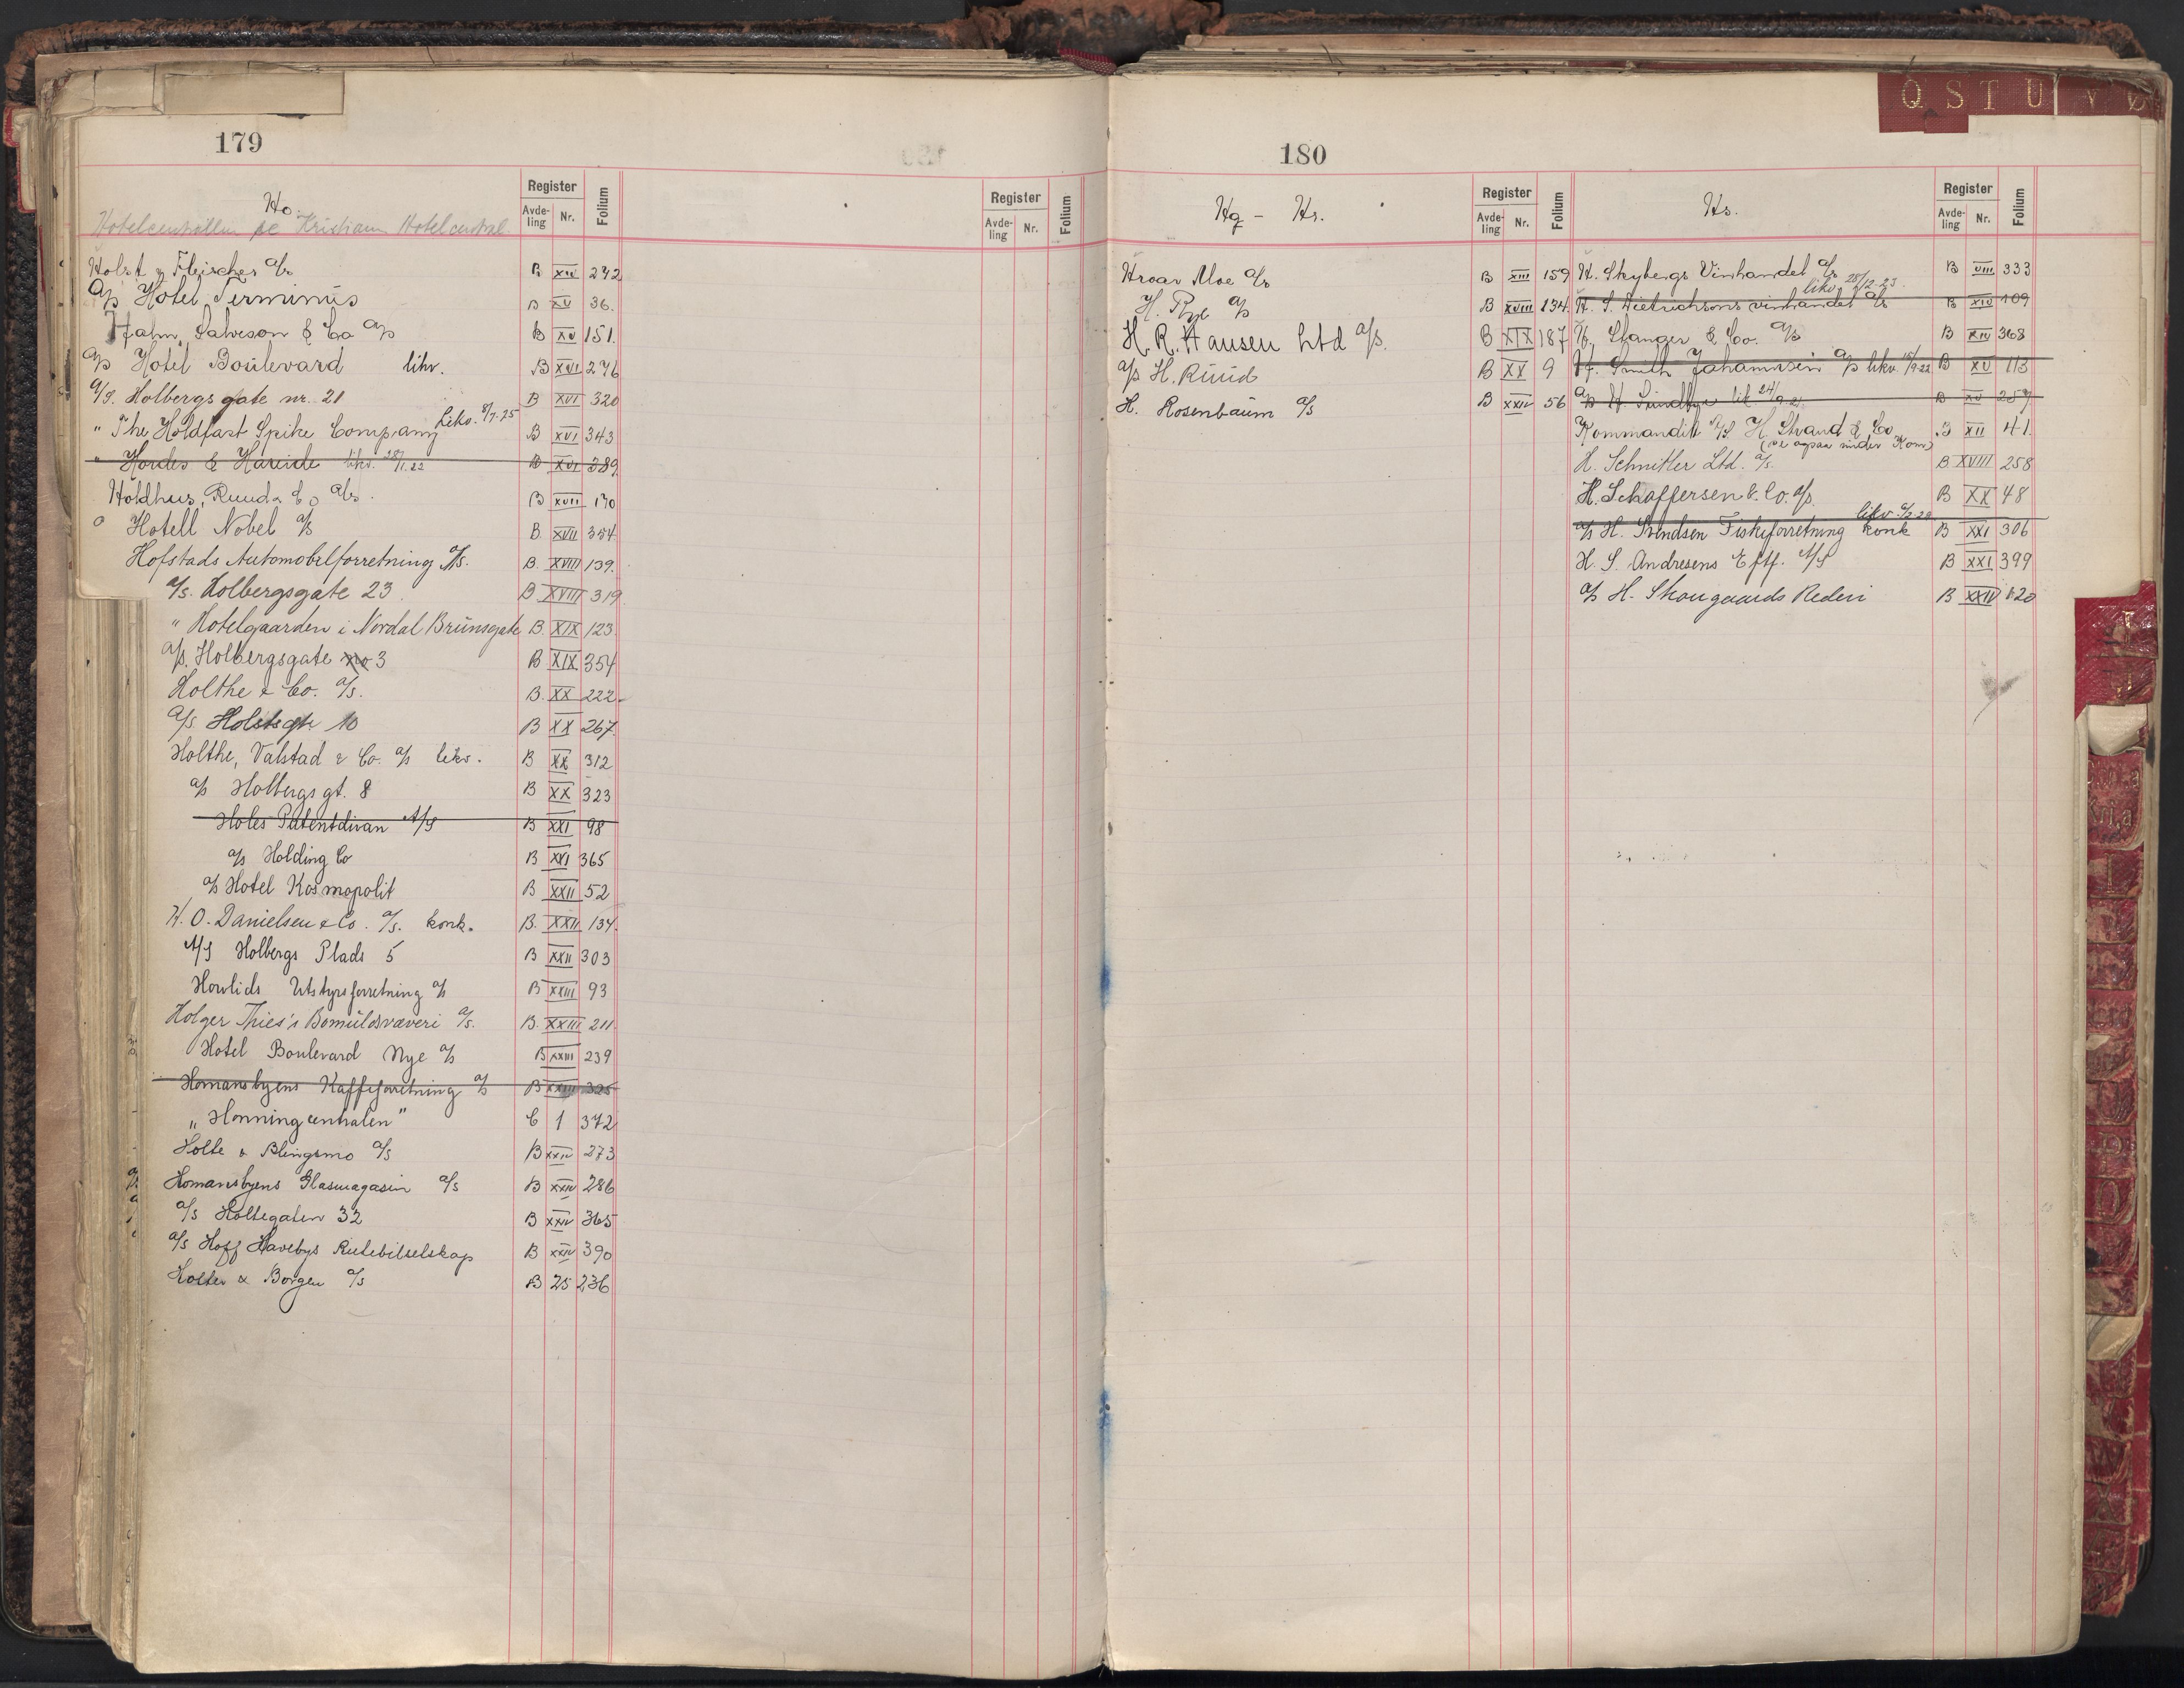 Q S T U V Ø
179
Ho.
Hotelcentrallen se Kristiania Hotelcentral.
Register
Avde-ling Nr. Folium
Holst & Fleischer A/s B XIV 242
A/s Hotel Terminus B XV 36.
Hahn, Salveson & Co A/s B XV 151.
A/s Hotel Boulevard likv. B XVI 276
A/S. Holbergs gate nr. 21 B XVI 320
" The Holdfast Spike Company Likv. 8/7-25 B XVI 343
" Hordes & Hareide likv. 28/1.22 B XVI 389
Holdhus, Ruud & Co A/s. B XVII 170
Hotell Nobel A/s B. XVII 354.
Hofstads Automobilforretning A/s. B. XVIII 139.
A/s. Holbergsgate 23. B XVIII 319
" Hotelgaarden i Nordal Brunsgate B. XIX 123.
A/s. Holbergsgate no 3 B XIX 354
Holthe & Co. A/s. B. XX 222.
A/s Holstsgt. 10 B XX 267.
Holthe, Valstad & Co. A/s likv. B XX 312
A/s Holbergs gt. 8 B XX 323
Holes Patentdivan A/S B XXI 98
A/s Holding Co B XXI 365
A/s Hotel Kosmopolit B XXII 52
H. O. Danielsen & Co. A/s. konk. B. XXII 134.
A/S Holbergs Plads 5 B XXII 303
Hovlids Utstyrsforretning A/s B XXIII 93
Holger Thies's Bomuldsvæveri A/s. B. XXIII 211.
Hotel Boulevard Nye A/s B XXIII 239
Homansbyens Kaffeforretning A/s B XXIII 325
"Honningcentralen" C 1 372
Holte & Blingsmo A/s B XXIV 273
Homansbyens Glasmagasin A/s B XXIV 286
A/s Holtegaten 32 B XXIV 365
A/s Hoff Havebys Rutebilselskap B XXIV 390
Holter & Borgen A/s B 25 236
Register
Avde-ling Nr. Folium
180
Hq - Hr.
Register
Avde-ling Nr. Folium
Hroar Moe A/s B XIII 159
H. Rye A/s B XVIII 134.
H. R. Hansen Ltd A/s. B XIX 187
A/s H. Ruud B XX 9
H. Rosenbaum A/s B XXIV 56
Hs.
Register
Avde-ling Nr. Folium
H. Skybergs Vinhandel A/s B VIII 333
likv. 28/12-23.
H. S. Dietrichsons vinhandel A/s B XIV 109
H. Stanger & Co. A/s B XIV 368
H. Smith Johannsen A/s likv. 15/9-22 B XV 113
A/s H. Sundbye lik 24/9.21 B XV 257
Kommandit A/S. H. Strand & Co B XII 41.
(se ogsaa under Kom)
H. Schnitler Ltd. A/s. B XVIII 258
H. Schaffersen & Co. A/s. B XX 48
A/s H. Svendsen Fiskeforretning konk B XXI 306
H. S. Andresens Eftf. A/S B XXI 399
A/s H. Skougaards Rederi B XXIV 120